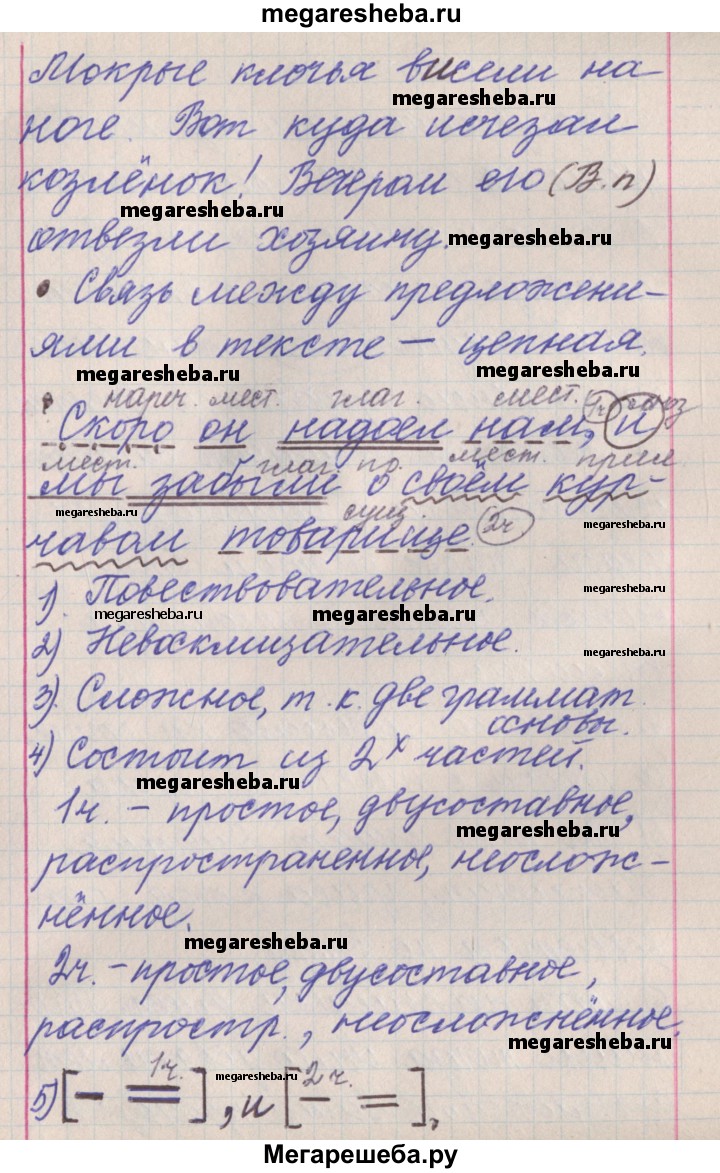 megaresheba.ru
Мокрые клочья висели на-
megaresheba.ru
ноге. Вот куда исчезал
козлёнок! Вечером его (В.п)
megaresheba.ru
отвезли хозяину.
megaresheba.ru
• Связь между предложени-
ями в тексте – цепная.
megaresheba.ru
megaresheba.ru
нареч. мест. глаг. мест. 1ч союз
Скоро он надоел нам, и
мест. глаг. пр. мест. прил
мы забыли о своём кур-
megaresheba.ru
megaresheba.ru
сущ.
чавом товарище. 2ч
1). Повествовательное.
megaresheba.ru
megaresheba.ru
megaresheba.ru
2) Невосклицательное.
megaresheba.ru
3). Сложное, т. к. две граммат.
основы.
4) Состоит из 2х частей.
megaresheba.ru
1ч. – простое, двусоставное,
megaresheba.ru
распространенное, неослож-
нённое.
megaresheba.ru
2ч. – простое, двусоставное,
распростр., неосложнённое.
megaresheba.ru
1ч. megaresheba.ru 2ч.
5) [– =], и [– =].
Мегарешеба.ру